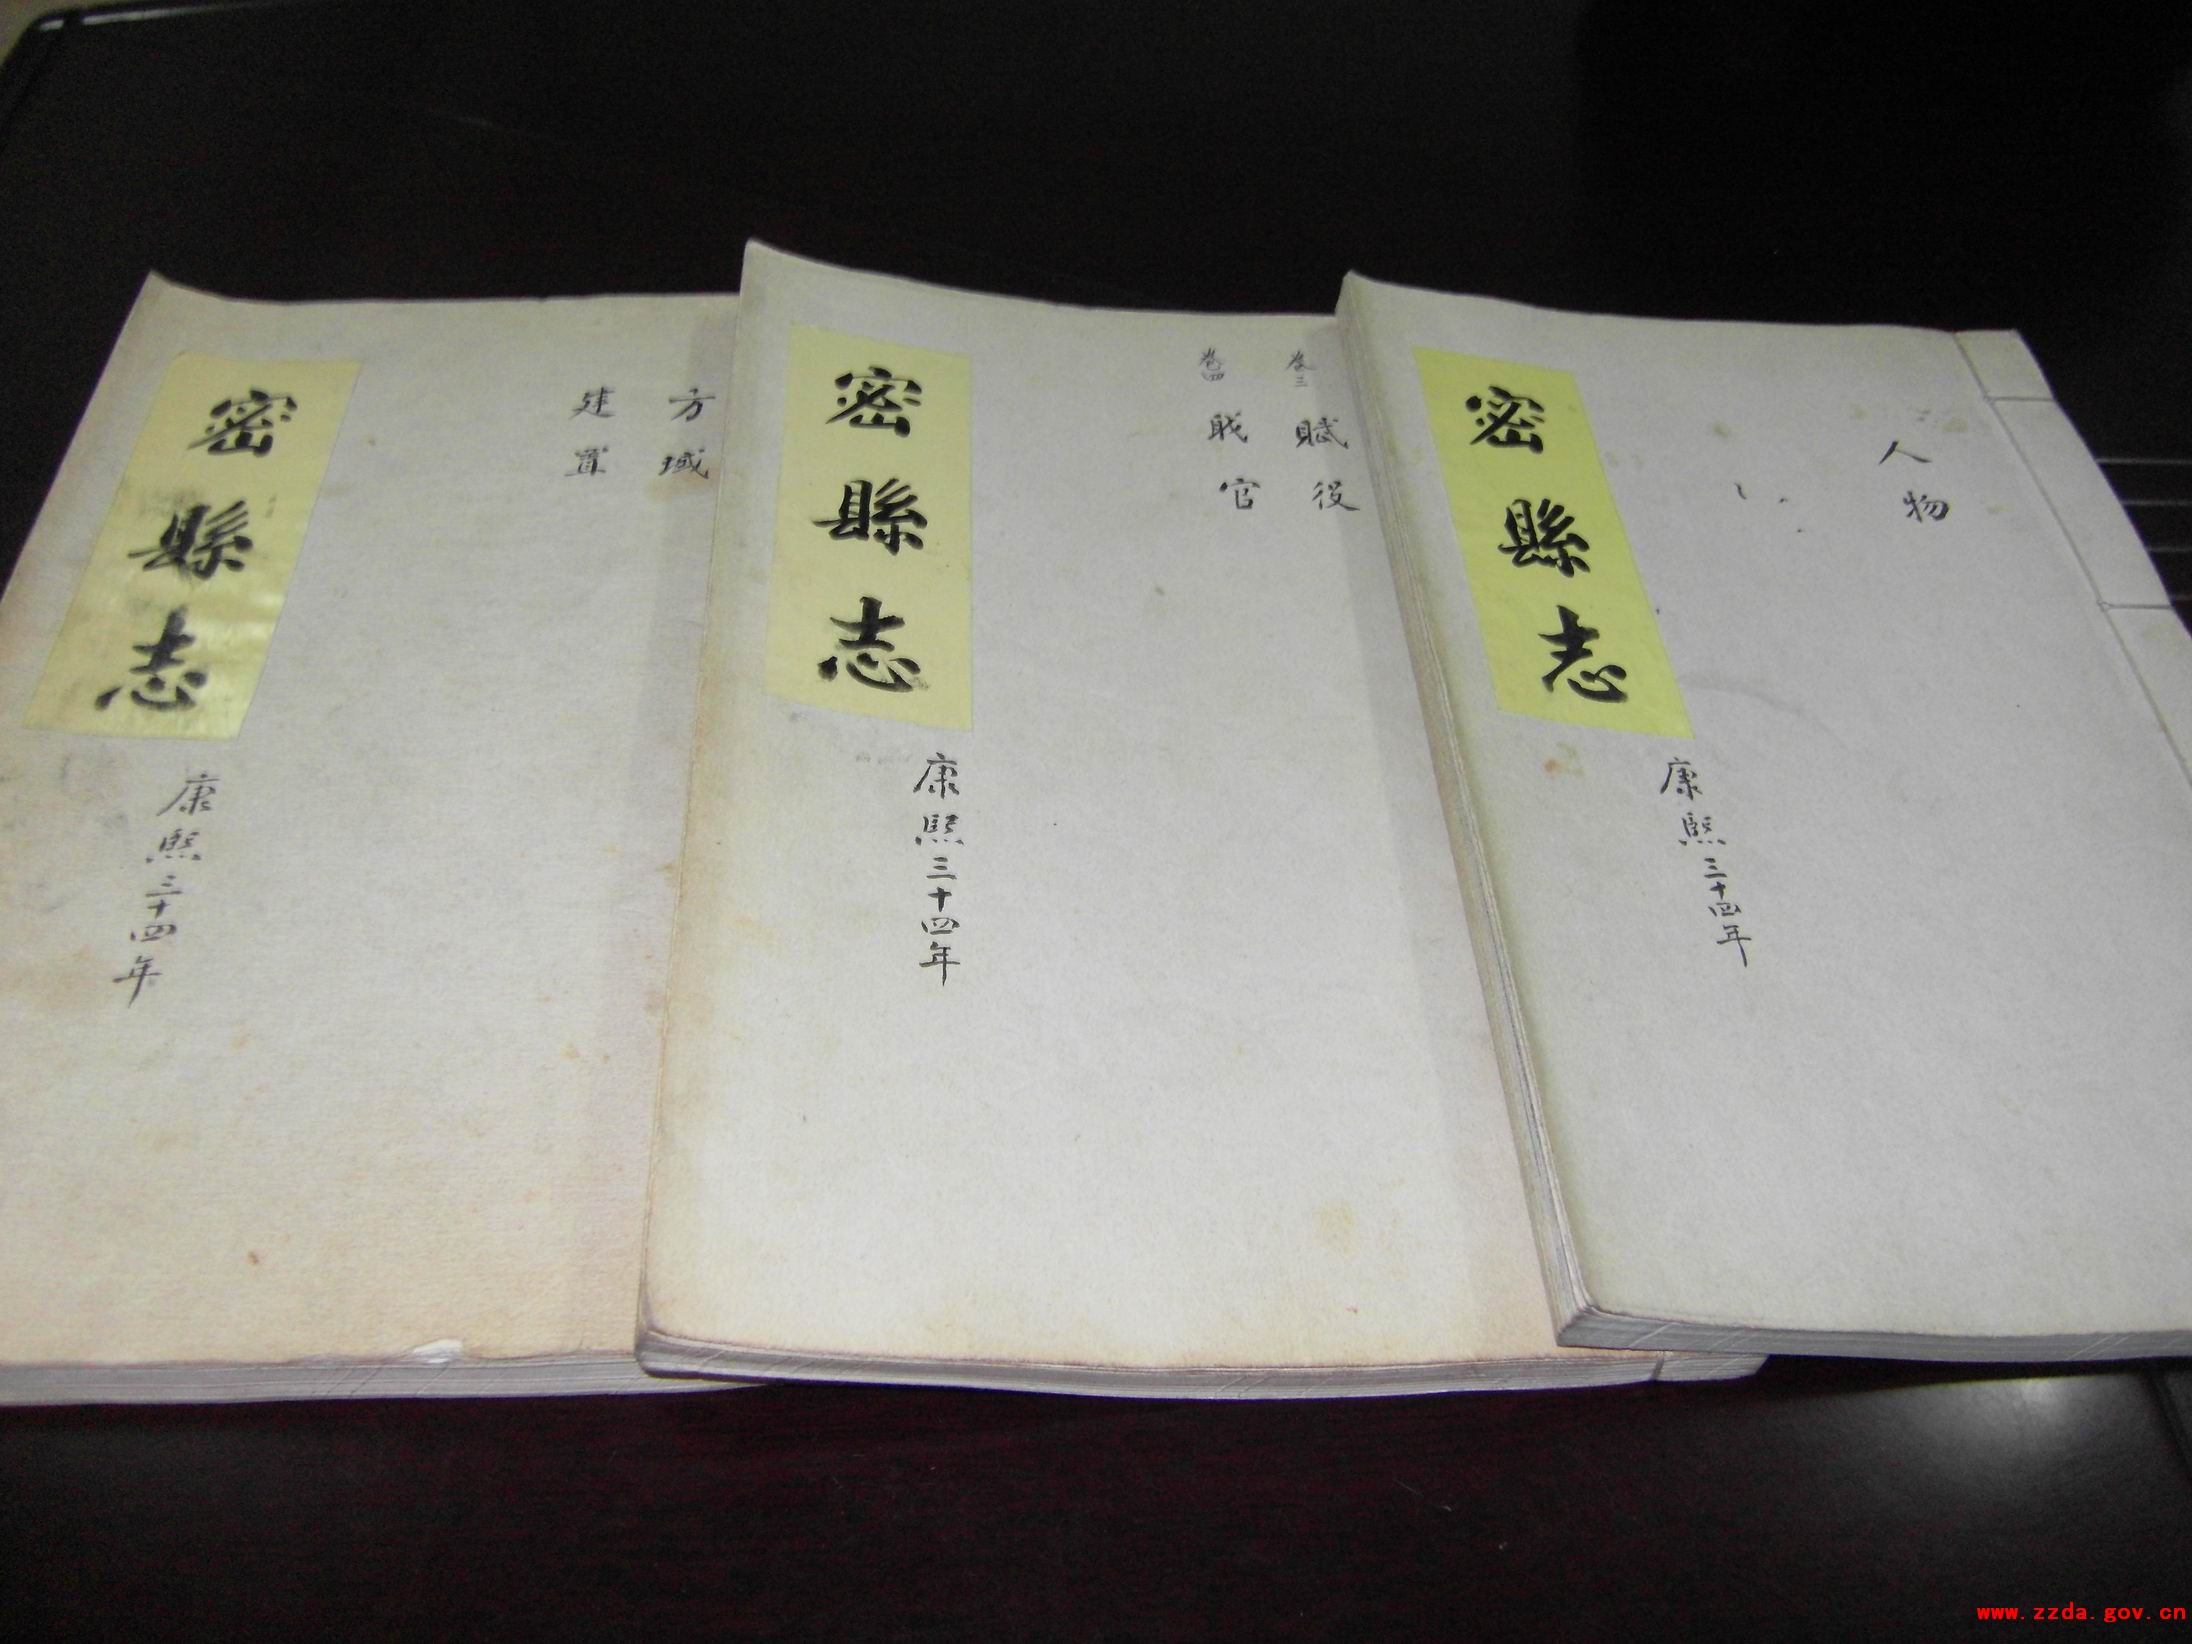 密縣志
康熙三十四年
方域
建置
密縣志
康熙三十四年
卷三 賦役
卷四 职官
密縣志
康熙三十四年
人物
www.zzda.gov.cn